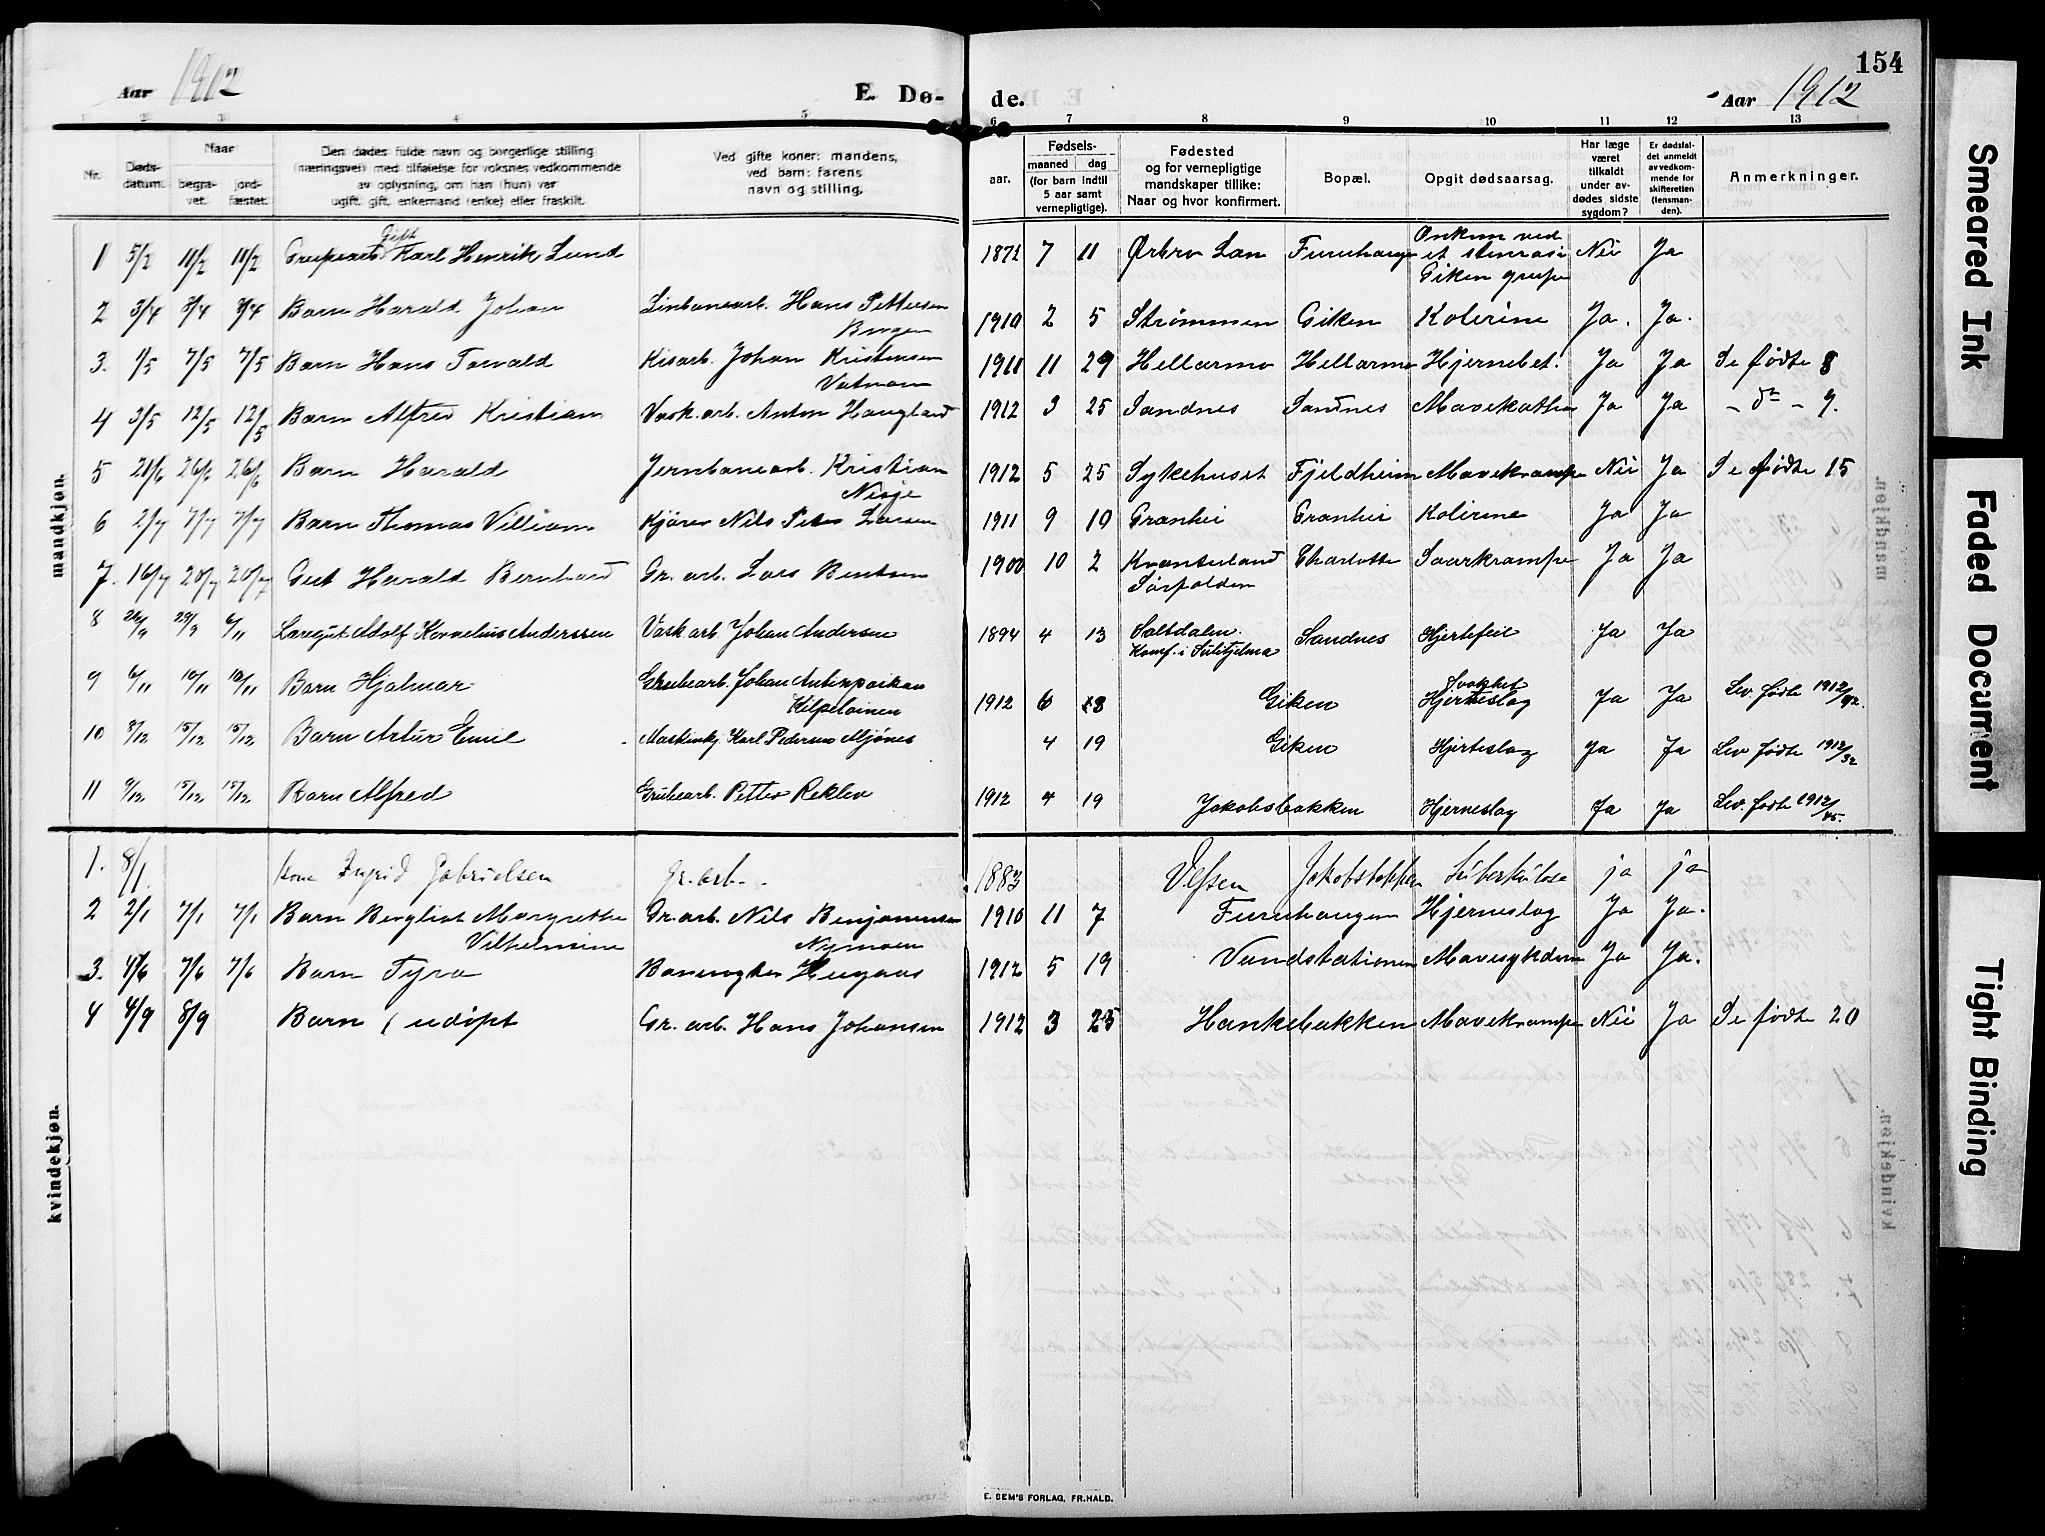 154
Aar 1912 E. Dø- de. Aar 1912
1 2 3 4 5 6 7 8 9 10 11 12 13
Nr. Døds-datum. Naar begra-vet. jord-fæstet. Den dødes fulde navn og borgerlige stilling (næringsvei) med tilføielse for voksnes vedkommende av oplysning, om han (hun) var ugift, gift, enkemand (enke) eller fraskilt. Ved gifte koner: mandens, ved barn: farens navn og stilling. aar. Fødsels- maaned dag (for barn indtil 5 aar samt vernepligtige). Fødested og for vernepligtige mandskaper tillike: Naar og hvor konfirmert. Bopæl. Opgit dødsaarsag. Har læge været tilkaldt under av-dødes sidste sygdom? Er dødsfal-det anmeldt av vedkom-mende for skifteretten (lensman-den). Anmerkninger.
mandkjøn.
Gift
1 5/2 11/2 11/2 Karl Henrik Lund 1872 7 11 Ørbro Lan Furuhaugen Omkom ved et stenras i Giken grupe Nei Ja
2 3/4 8/4 8/4 Barn Harald Johan Linbanearb. Hans Pettersen 1910 2 5 Strømmen Giken Kolerine Ja. Ja.
3. 1/5 7/5 7/5 Barn Hans Torvald Kisarb. Johan Kristensen Vatnan 1911 11 29 Hellarmo Hellarmo Hjernebet. Ja Ja Se fødte 8
4 3/5 12/5 12/5 Barn Alfred Kristian Vask.arb. Anton Haugland 1912 3 25 Sandnes Sandnes Ja Ja - do - 9.
5 21/6 26/6 26/6 Barn Harald Jernbanearb. Kristian Nesje 1912 5 25 Sykehuset Fjeldheim Mavekrampe Nei Ja Se fødte 15
6 2/7 7/7 7/7 Barn Thomas Villiam Kjører Nils Peter Larsen 1911 9 10 Granhei Granhei Kolerine Ja Ja
7. 16/7 20/7 20/7 Gut Harald Bernhard Gr. arb. Lars Bentsen 1900 10 2 Sørfolden Charlotte Saarkrampe Ja Ja
8 26/9 29/9 6/11 Læregut Adolf Kornelius Anderssen Vaskarb Johan Andersen 1894 4 13 Saltdalen. Komf. i Sulitjelma Sandnes Hjertefeil Ja Ja
9 6/11 10/11 10/11 Barn Hjalmar Grubearb. Johan Antinpoikan Kilpelainen 1912 6 18 Giken Hjerteslag Ja Ja Lev. fødte 1912/42.
10 8/12 15/12 15/12 Barn Artur Emil Maskinkj Karl Pedersen Mjønes 4 19 Giken Hjerteslag Ja Ja Lev fødte 1912/32
11 9/12 15/12 15/12 Barn Alfred Grubearb. Petter Reklev 1912 4 19 Jakobsbakken Hjerneslag Ja Ja Lev. fødte 1912/45.
kvindekjøn.
1. 8/1. Kone Ingrid Gabrielsen Gr. arb. 1883 Vefsen Jakobstoppen Tuberkulose ja ja
2 2/1 7/1 7/1 Barn Bergliot Margrethe Vilhelmine Gr. arb. Nils Benjaminsen Nymoen 1910 11 7 Furuhaugen Hjerneslag Ja Ja.
3. 4/6 7/6 7/6 Barn Tyra Banevogter Haugaas 1912 5 19 Vandstationen Mavesykdom Ja Ja.
4 4/9 8/9 Barn (udøpt Gr. arb. Hans Johansen 1912 3 25 Hankebakken Mavekrampe Nei Ja Se fødte 20
E. SEM'S FORLAG, FR.HALD.
mandkjøn.
kvindekjøn.
Smeared Ink
Faded Document
Tight Binding